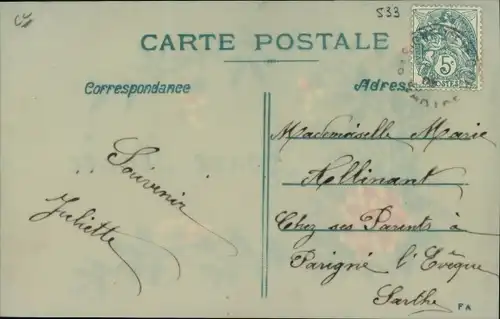 533
CARTE POSTALE
Correspondance
Adresse
5c
POSTES
Souvenir
Juliette
Mademoiselle Marie
Hollinant
Chez ses Parents à
Parigné l'Evêque
Sarthe
FA